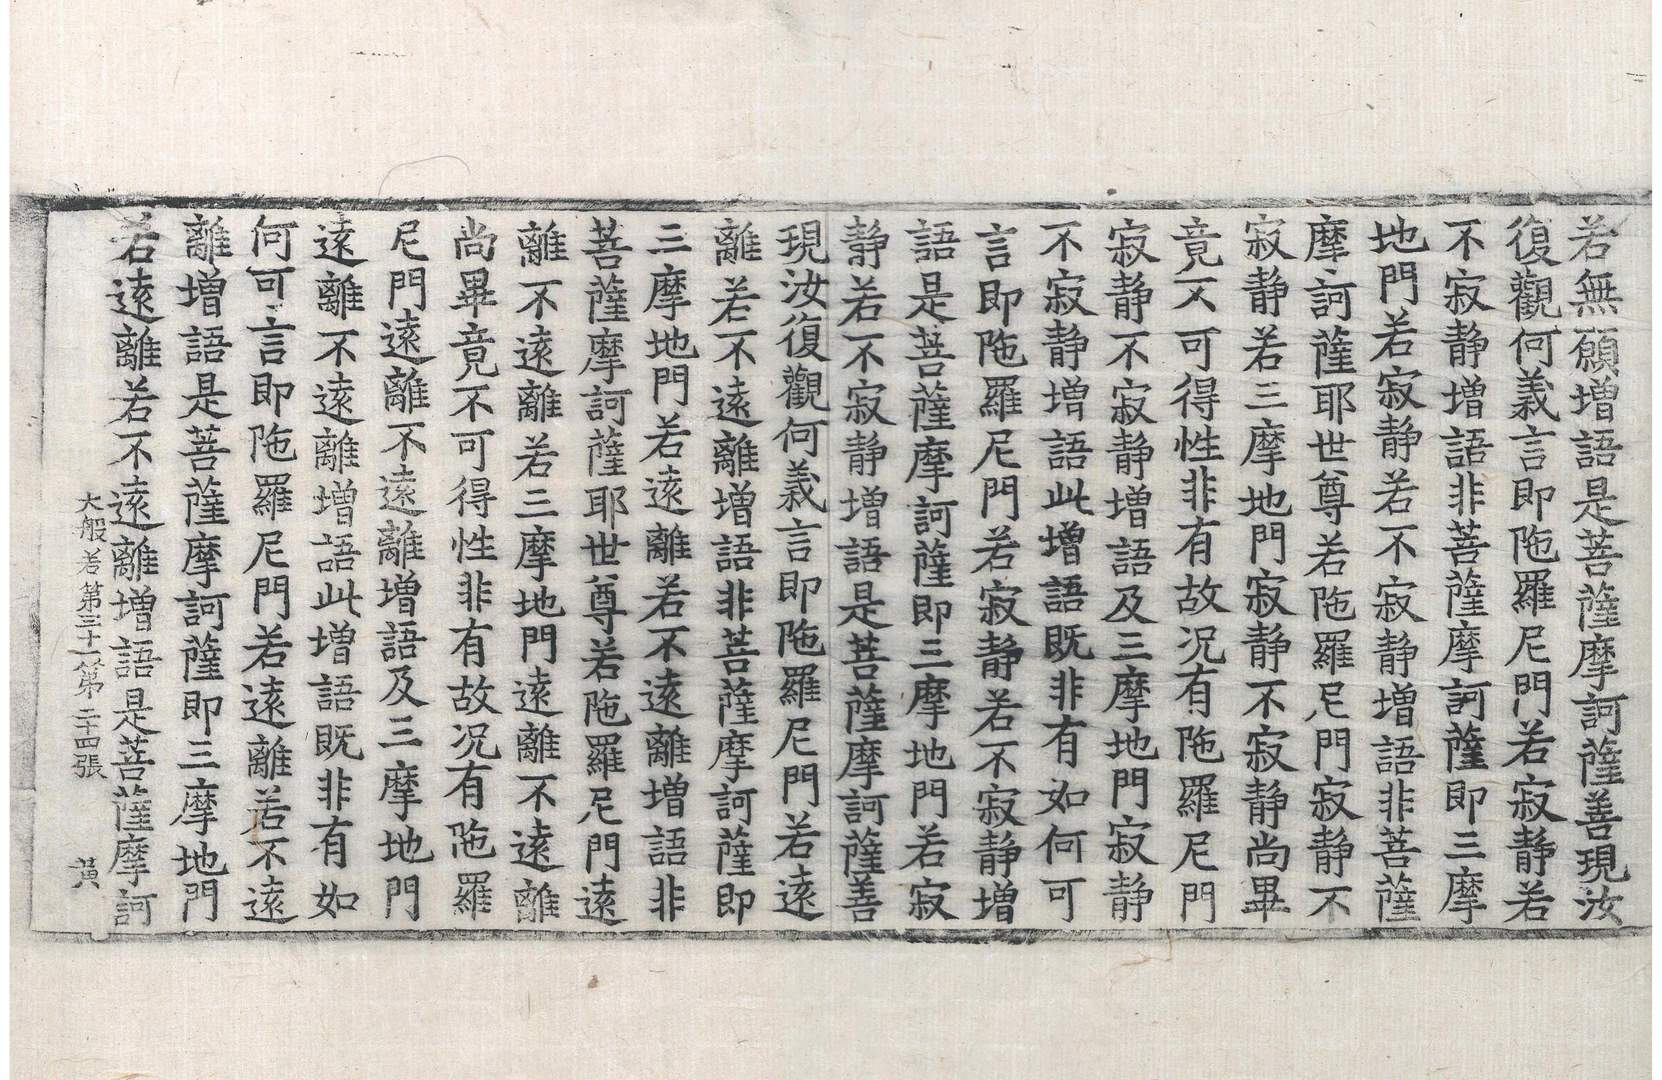 若無願增語是菩薩摩訶薩善現汝
復觀何義言即陁羅尼門若寂靜若
不寂靜增語非菩薩摩訶薩即三摩
地門若寂靜若不寂靜增語非菩薩
摩訶薩耶世尊若陁羅尼門寂靜不
寂靜若三摩地門寂靜不寂靜尚畢
竟不可得性非有故况有陁羅尼門
寂靜不寂靜增語及三摩地門寂靜
不寂靜增語此增語既非有如何可
言即陁羅尼門若寂靜若不寂靜增
語是菩薩摩訶薩即三摩地門若寂
靜若不寂靜增語是菩薩摩訶薩善
現汝復觀何義言即陁羅尼門若遠
離若不遠離增語非菩薩摩訶薩即
三摩地門若遠離若不遠離增語非
菩薩摩訶薩耶世尊若陁羅尼門遠
離不遠離若三摩地門遠離不遠離
尚畢竟不可得性非有故况有陁羅
尼門遠離不遠離增語及三摩地門
遠離不遠離增語此增語既非有如
何可言即陁羅尼門若遠離若不遠
離增語是菩薩摩訶薩即三摩地門
若遠離若不遠離增語是菩薩摩訶
大般若第三十一第二十四張 黃